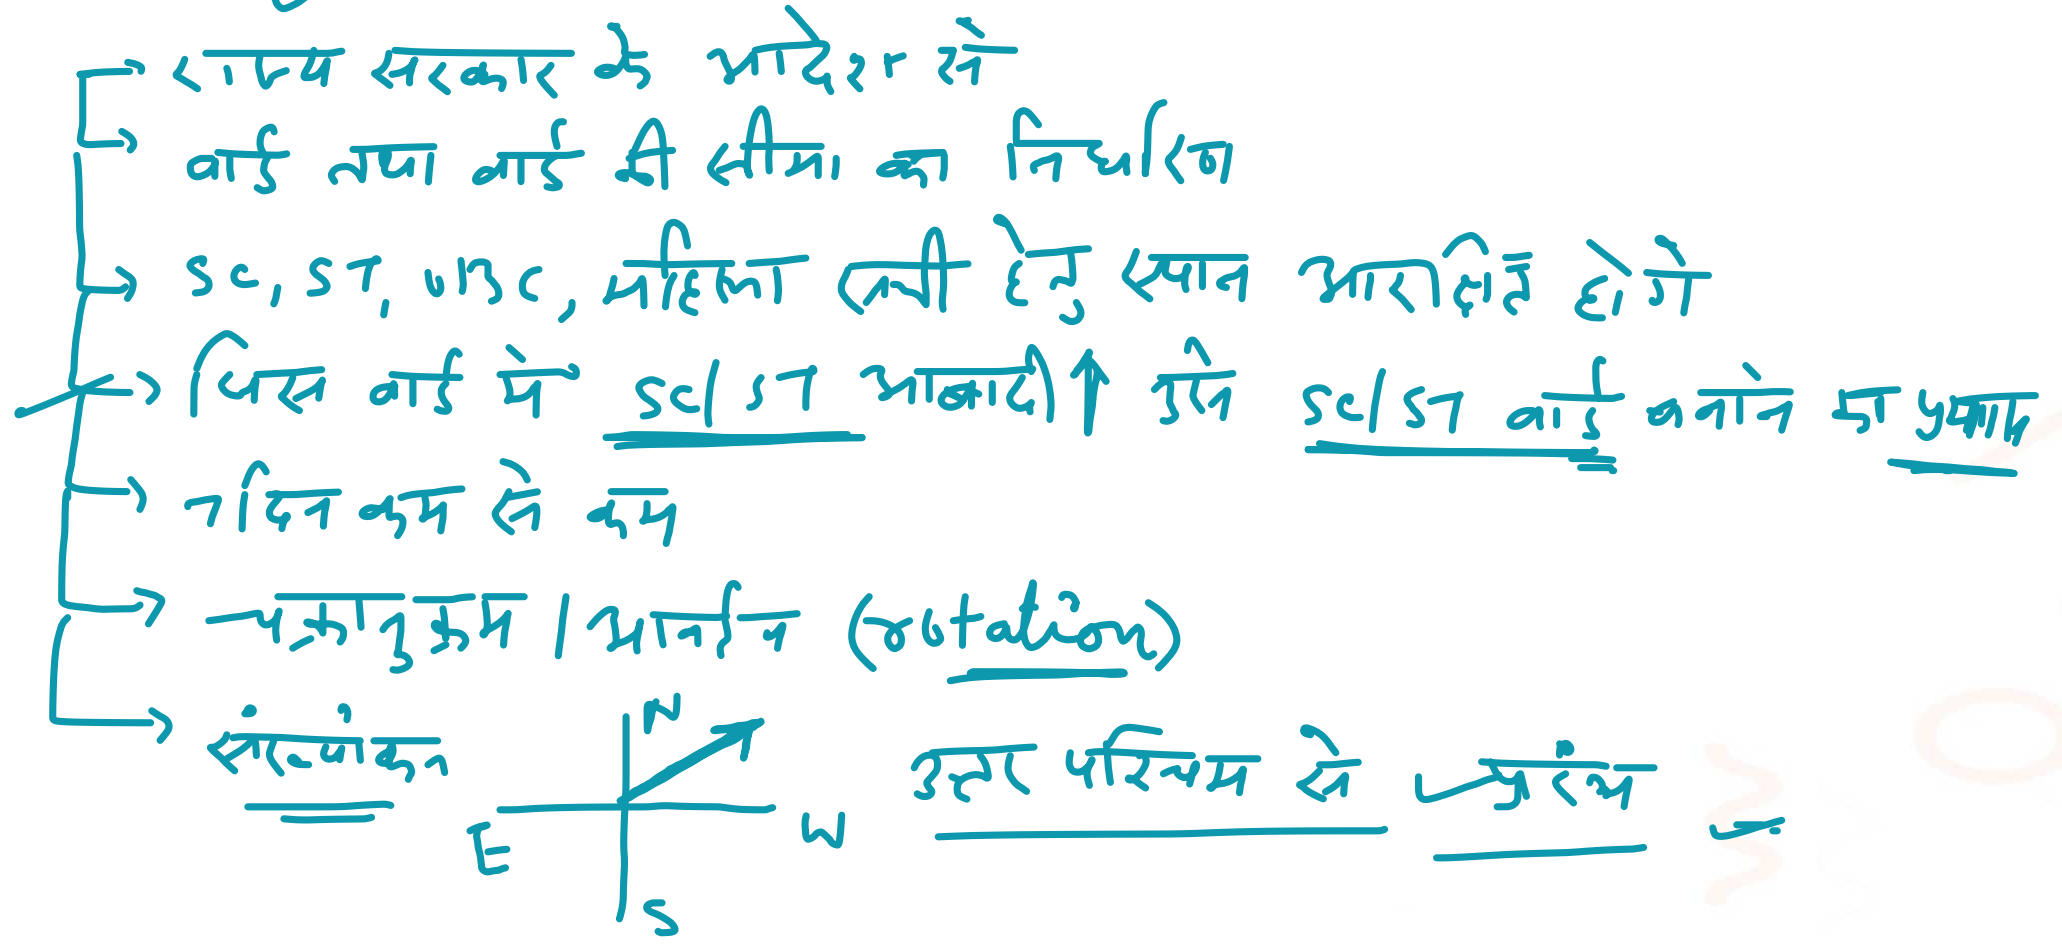 राज्य सरकार के आदेश से
वार्ड तथा वार्ड की सीमा का निर्धारण
SC, ST, OBC, महिला सभी हेतु स्थान आरक्षित होंगे
जिस वार्ड में SC/ST आबादी ↑ उसे SC/ST वार्ड बनाने का प्रयास
7 दिन कम से कम
चक्रानुक्रम / आवर्तन (rotation)
संख्यांकन N उत्तर पश्चिम से प्रारंभ
E W
S